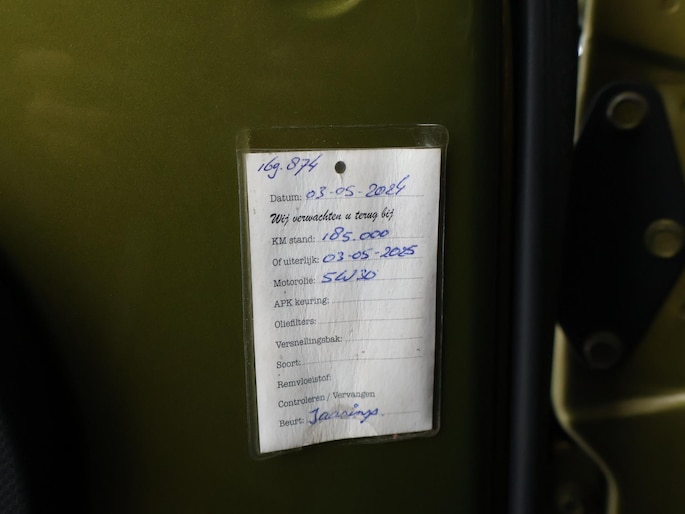 169.874
Datum: 03-05-2024
Wij verwachten u terug bij
KM stand: 185.000
Of uiterlijk: 03-05-2025
Motorolie: 5W30
APK keuring:
Oliefilters:
Versnellingsbak:
Soort:
Remvloeistof:
Controleren / Vervangen
Beurt: Jaarlijns.